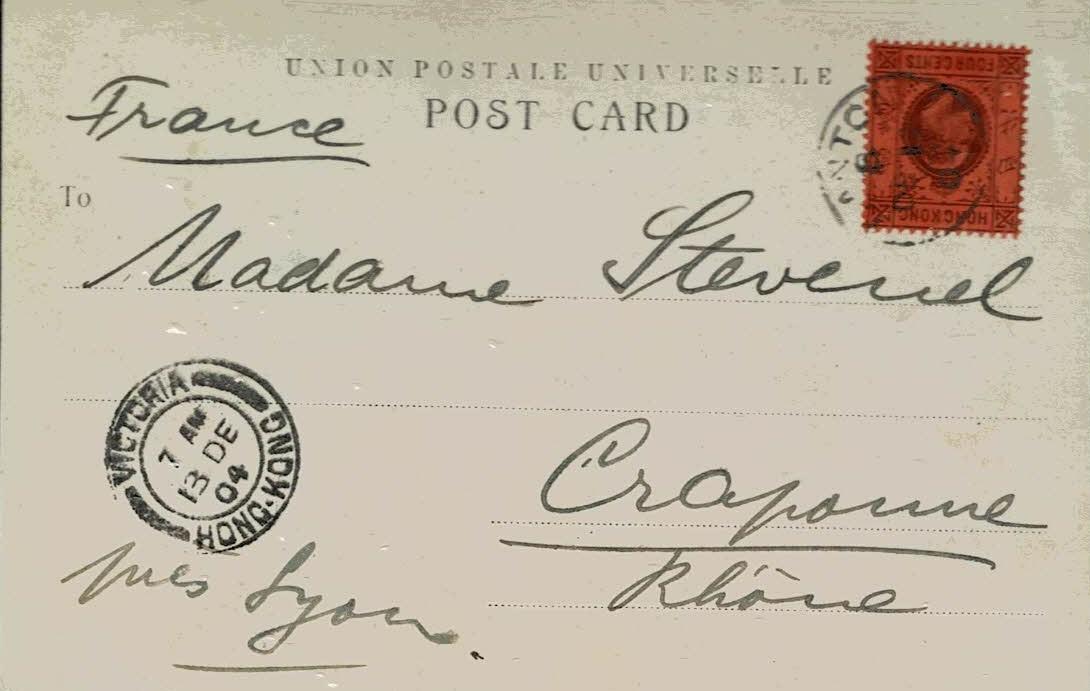 UNION POSTALE UNIVERSELLE
POST CARD
France
To
Madame Stevenel
Craponne
Rhône
près Lyon.
VICTORIA
HONG·KONG
7 AM
13 DE
04
FOUR CENTS
HONG KONG